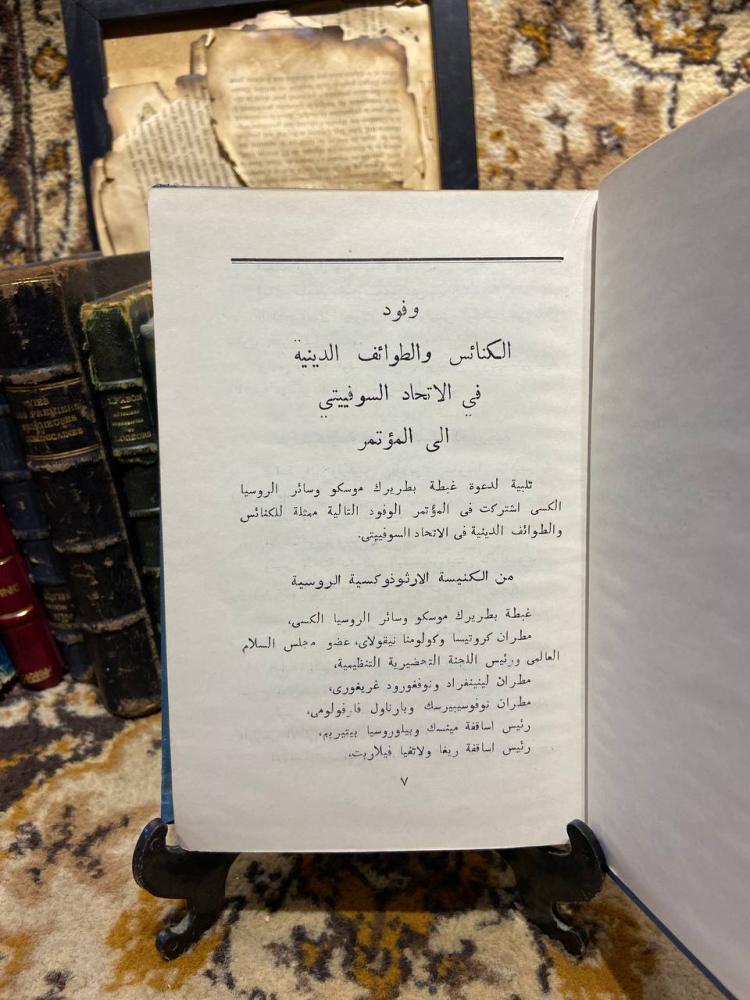 وفود
الكنائس والطوائف الدينية
في الاتحاد السوفييتي
الى المؤتمر
تلبية لدعوة غبطة بطريرك موسكو وسائر الروسيا
الكسى اشتركت فى المؤتمر الوفود التالية ممثلة للكنائس
والطوائف الدينية فى الاتحاد السوفييتى.
من الكنيسة الارثوذوكسية الروسية
غبطة بطريرك موسكو وسائر الروسيا الكسى،
مطران كروتيسا وكولومنا نيقولاى، عضو مجلس السلام
العالمى ورئيس اللجنة التحضيرية التنظيمية،
مطران لينينغراد ونوفغورود غريغورى،
مطران نوفوسيبيرسك وبارناول فارفولومى،
رئيس اساقفة مينسك وبيلوروسيا بيتيريم،
رئيس اساقفة ريغا ولاتفيا فيلاريت،
٧